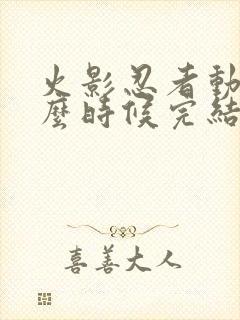 火影忍者動
麼時候完結
喜善大人